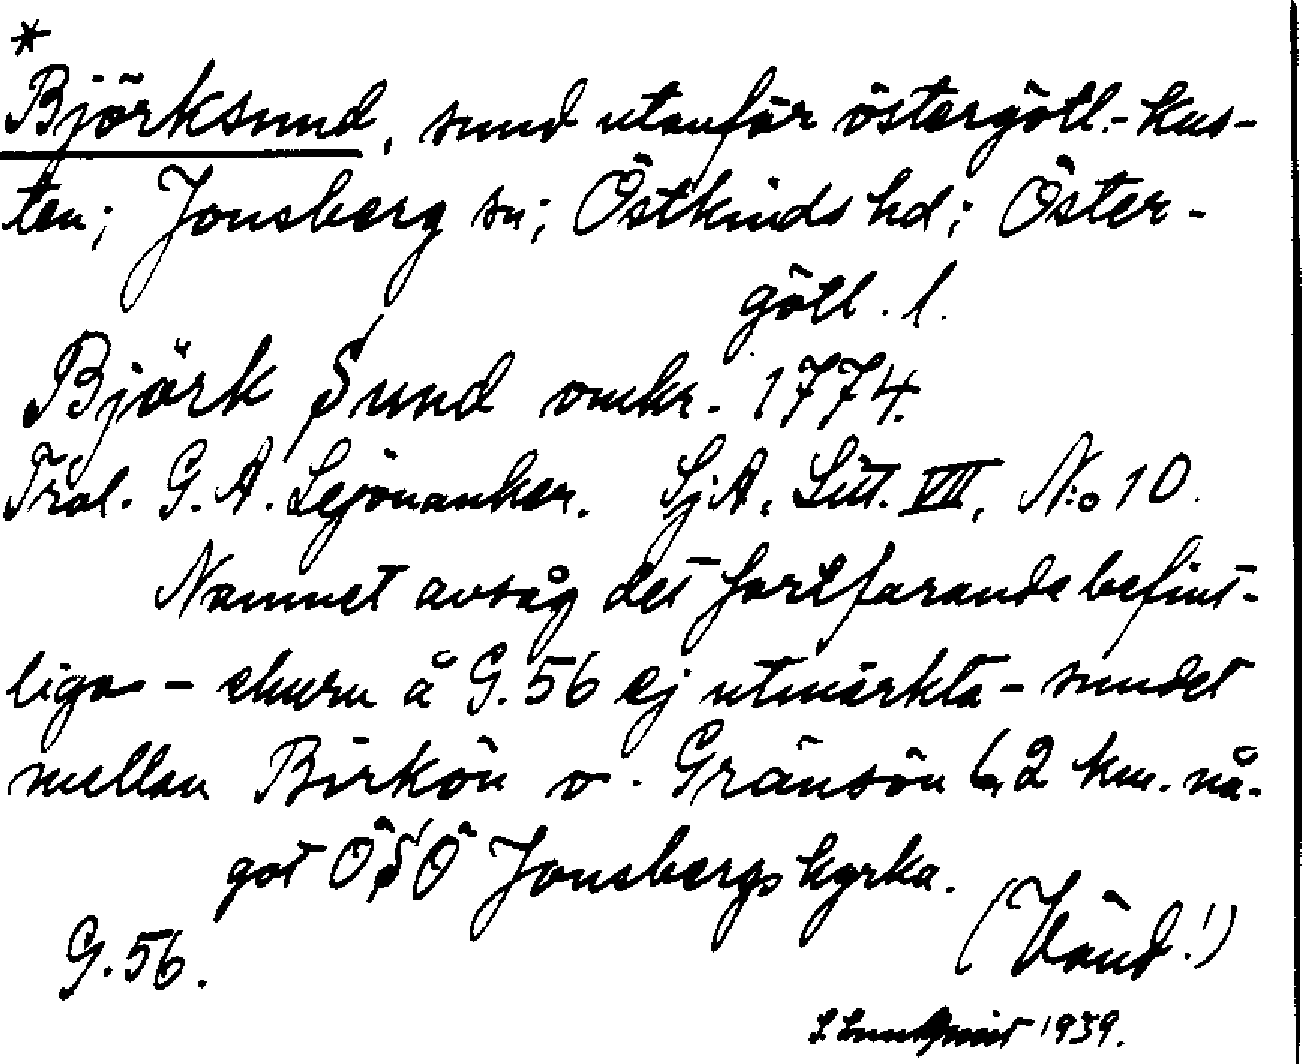 *
Björksund, sund utanför östergötl.-kus-
ten; Jonsberg sn; Östkinds hd; Öster-
götl. l.
Björk Sund omkr. 1774.
Trol. G. A. Lejonanker. SjA, Litt. VII, N:o 10.
Namnet avsåg det fortfarande befint-
liga - ehuru å G. 56 ej utmärkta - sundet
mellan Birkön o. Gränsön 6,2 km. nå-
got ÖSÖ Jonsbergs kyrka.
(Vänd!)
G. 56.
1939.